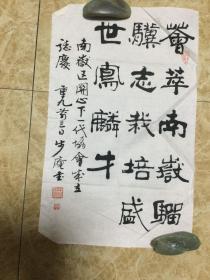 薈萃南嶽
驥志栽培盛
世鳳麟牛
南嶽区關心下一代協會成立
誌慶 重九前三日 步庵書